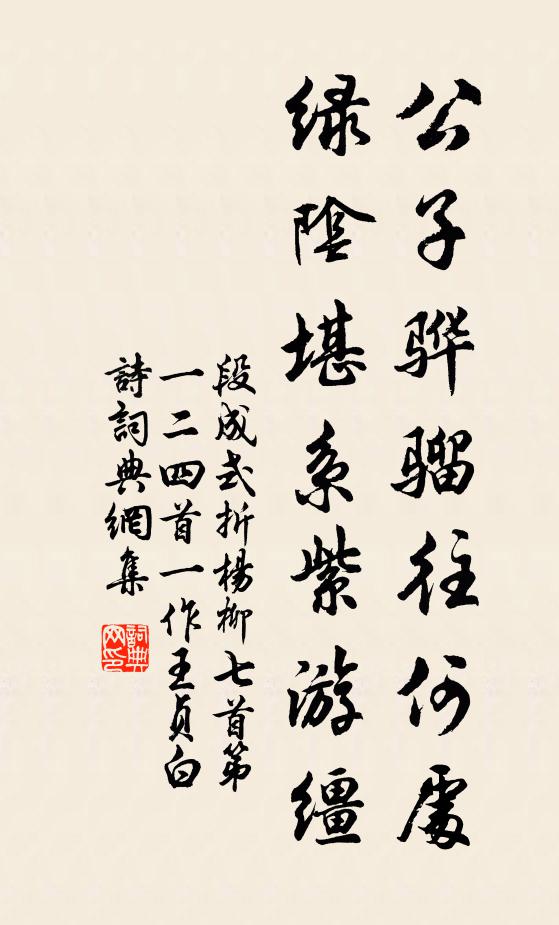 公子骅骝往何處
绿陰堪系紫游缰
段成式折楊柳七首第
一二四首一作王貞白
詩詞典網集
詞典网印